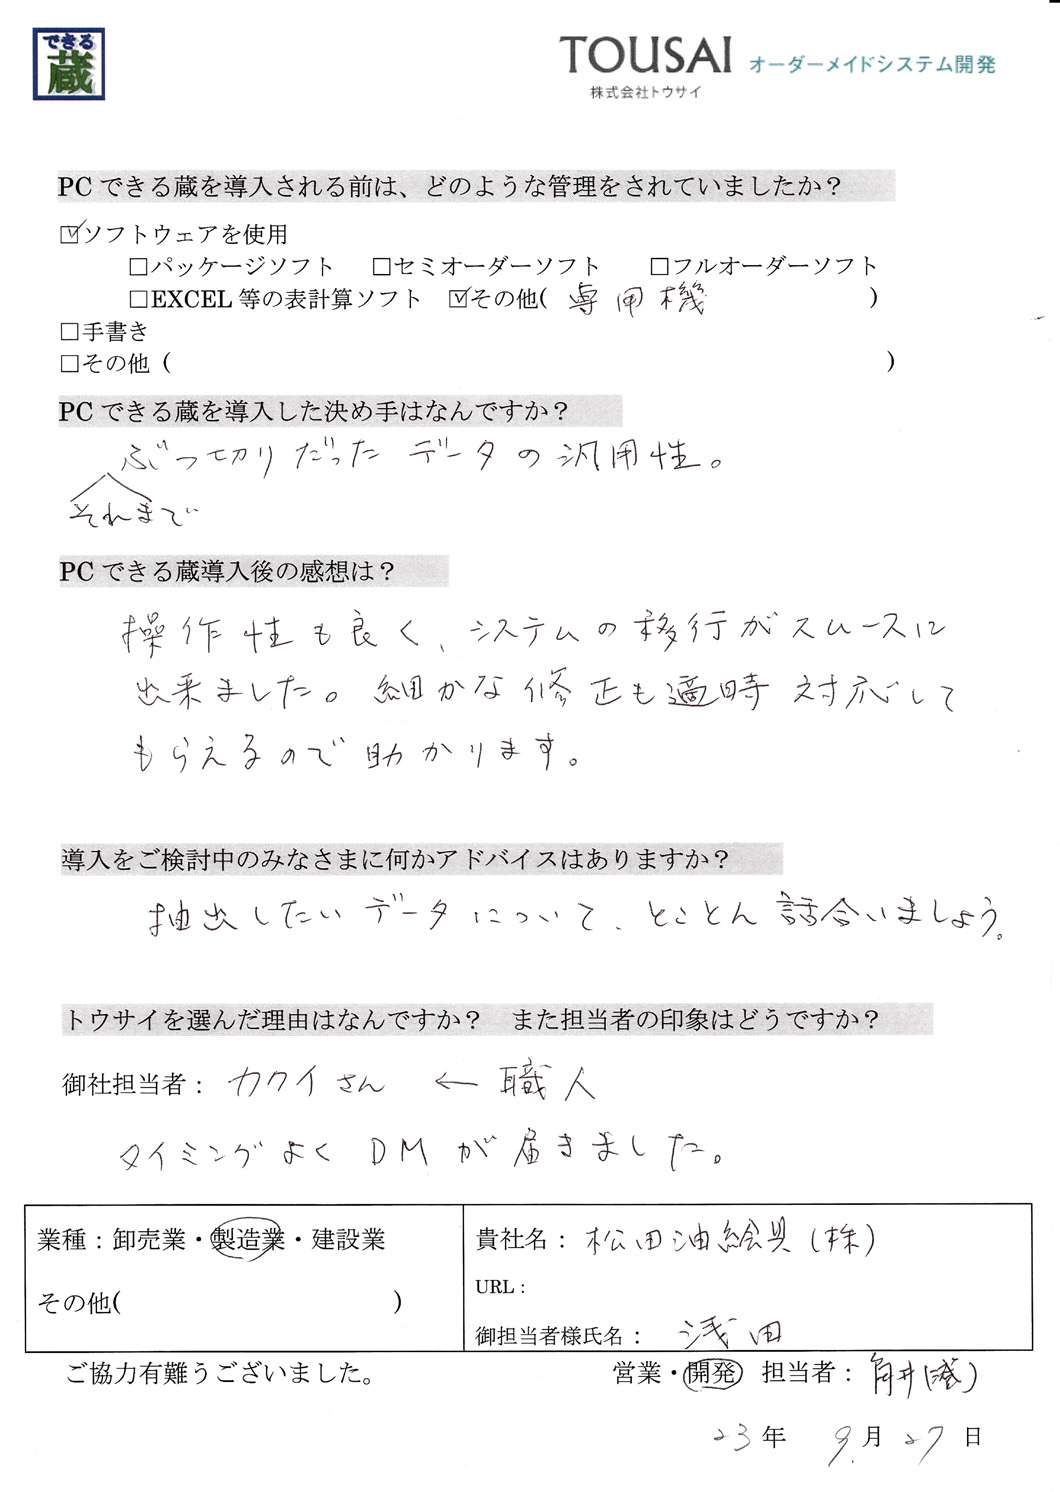 できる
蔵
TOUSAI オーダーメイドシステム開発
株式会社トウサイ
PCできる蔵を導入される前は、どのような管理をされていましたか？
☑ソフトウェアを使用
□パッケージソフト □セミオーダーソフト □フルオーダーソフト
□EXCEL等の表計算ソフト ☑その他( 専用機 )
□手書き
□その他 ( )
PCできる蔵を導入した決め手はなんですか？
ぶつ切りだったデータの汎用性。
それまで
PCできる蔵導入後の感想は？
操作性も良く、システムの移行がスムースに
出来ました。細かな修正も適時対応して
もらえるので助かります。
導入をご検討中のみなさまに何かアドバイスはありますか？
抽出したいデータについて、とことん話合いましょう。
トウサイを選んだ理由はなんですか？ また担当者の印象はどうですか？
御社担当者： カクイさん ← 職人
タイミングよくDMが届きました。
業種：卸売業・製造業・建設業
その他( )
貴社名： 松田油絵具(株)
URL：
御担当者様氏名： 浅田
ご協力有難うございました。
営業・開発 担当者： 角井(
23年 9月27日